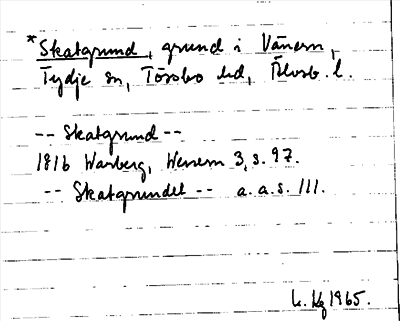 *Skatgrund, grund i Vänern,
Tydje sn, Tössbo hd, Älvsb. l.
-- Skatgrund --
1816 Warberg, Wenern 3, s. 97.
-- Skatgrundet -- a. a. s. 111.
1965.